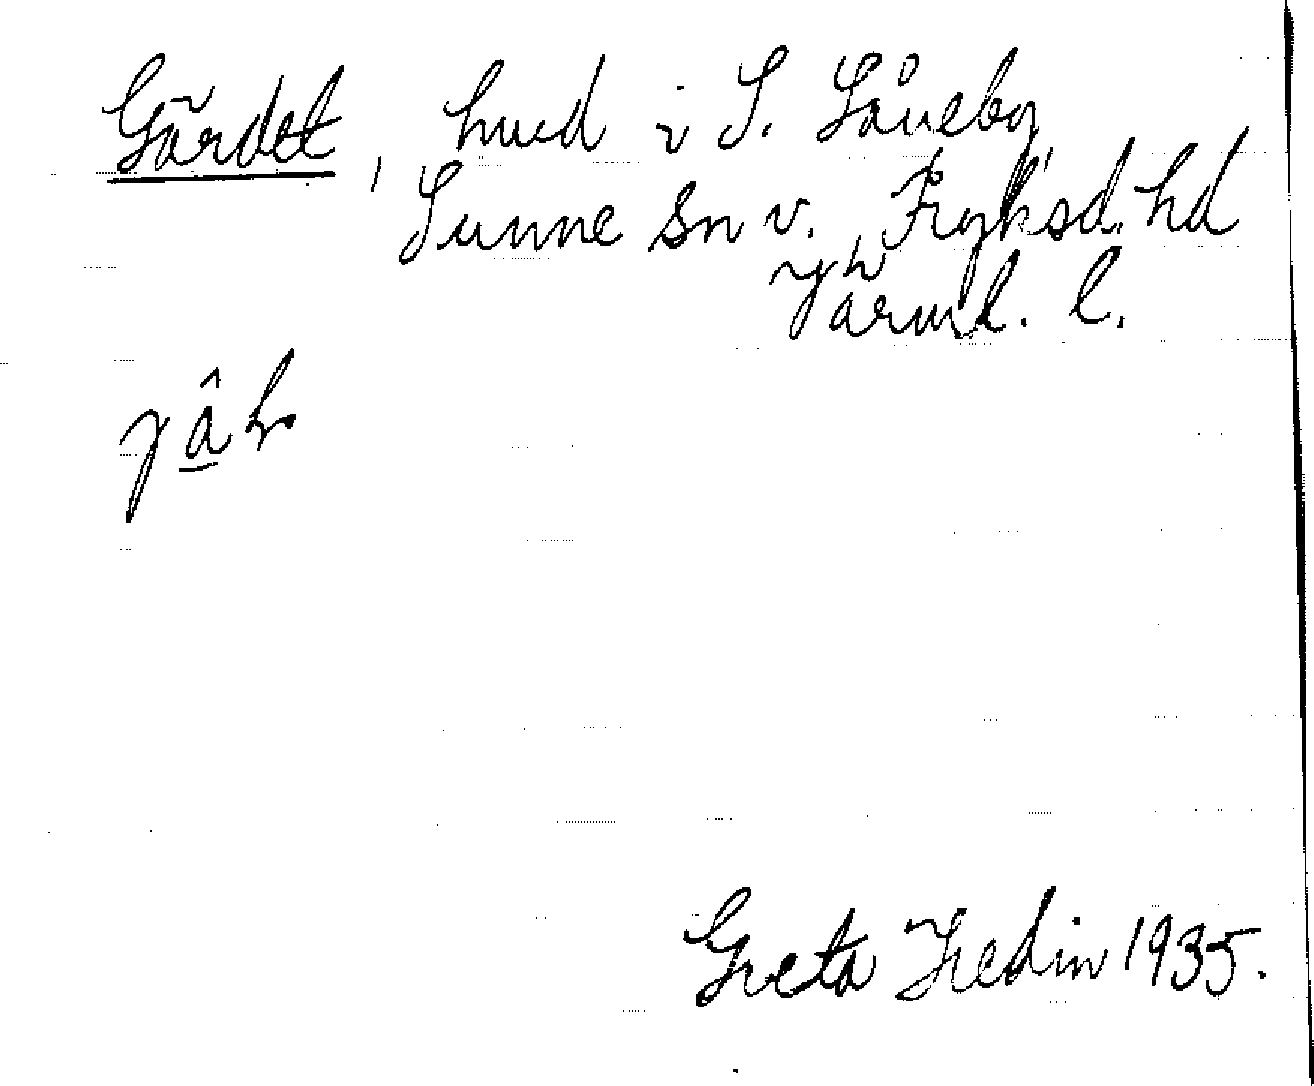 Gärdet, hmd i S. Såneby
Sunne sn v. Fryksd. hd
Värml. l.
Greta Hedin 1935.